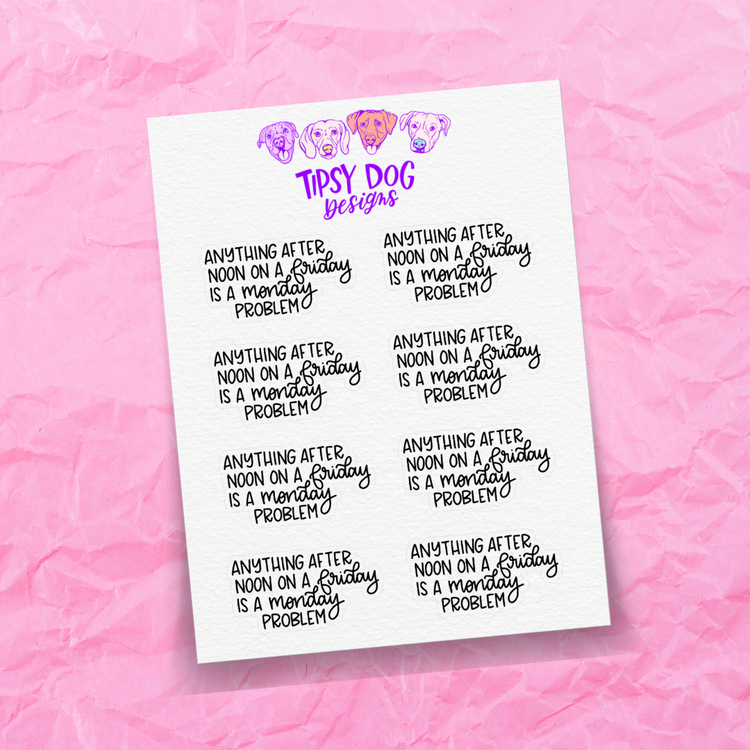 TIPSY DOG
Designs
ANYTHING AFTER
NOON ON A friday
IS A monday
PROBLEM
ANYTHING AFTER
NOON ON A friday
IS A monday
PROBLEM
ANYTHING AFTER
NOON ON A friday
IS A monday
PROBLEM
ANYTHING AFTER
NOON ON A friday
IS A monday
PROBLEM
ANYTHING AFTER
NOON ON A friday
IS A monday
PROBLEM
ANYTHING AFTER
NOON ON A friday
IS A monday
PROBLEM
ANYTHING AFTER
NOON ON A friday
IS A monday
PROBLEM
ANYTHING AFTER
NOON ON A friday
IS A monday
PROBLEM